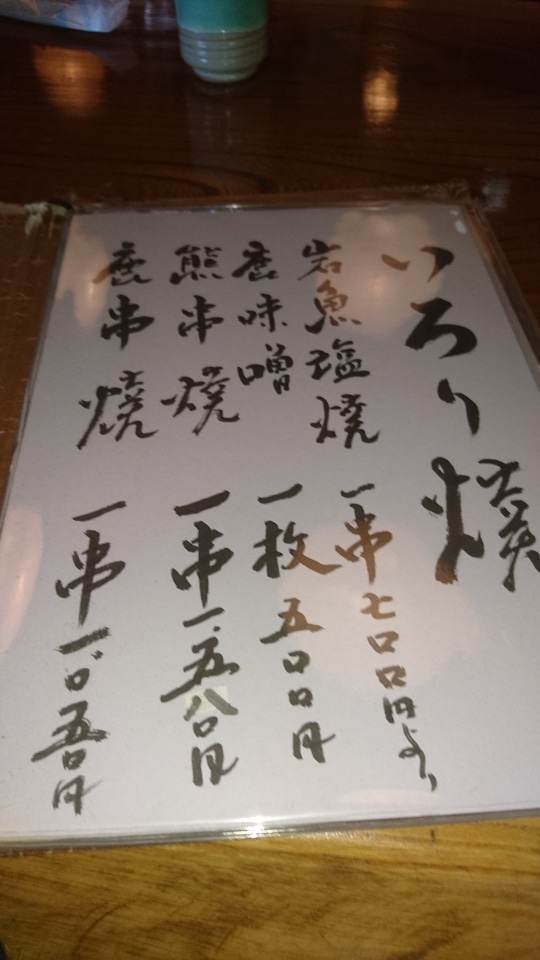 いろり焼
岩魚塩焼 一串七〇〇円より
鹿味噌 一枚五〇〇円
熊串焼 一串一.五八〇円
鹿串焼 一串一.〇五〇円